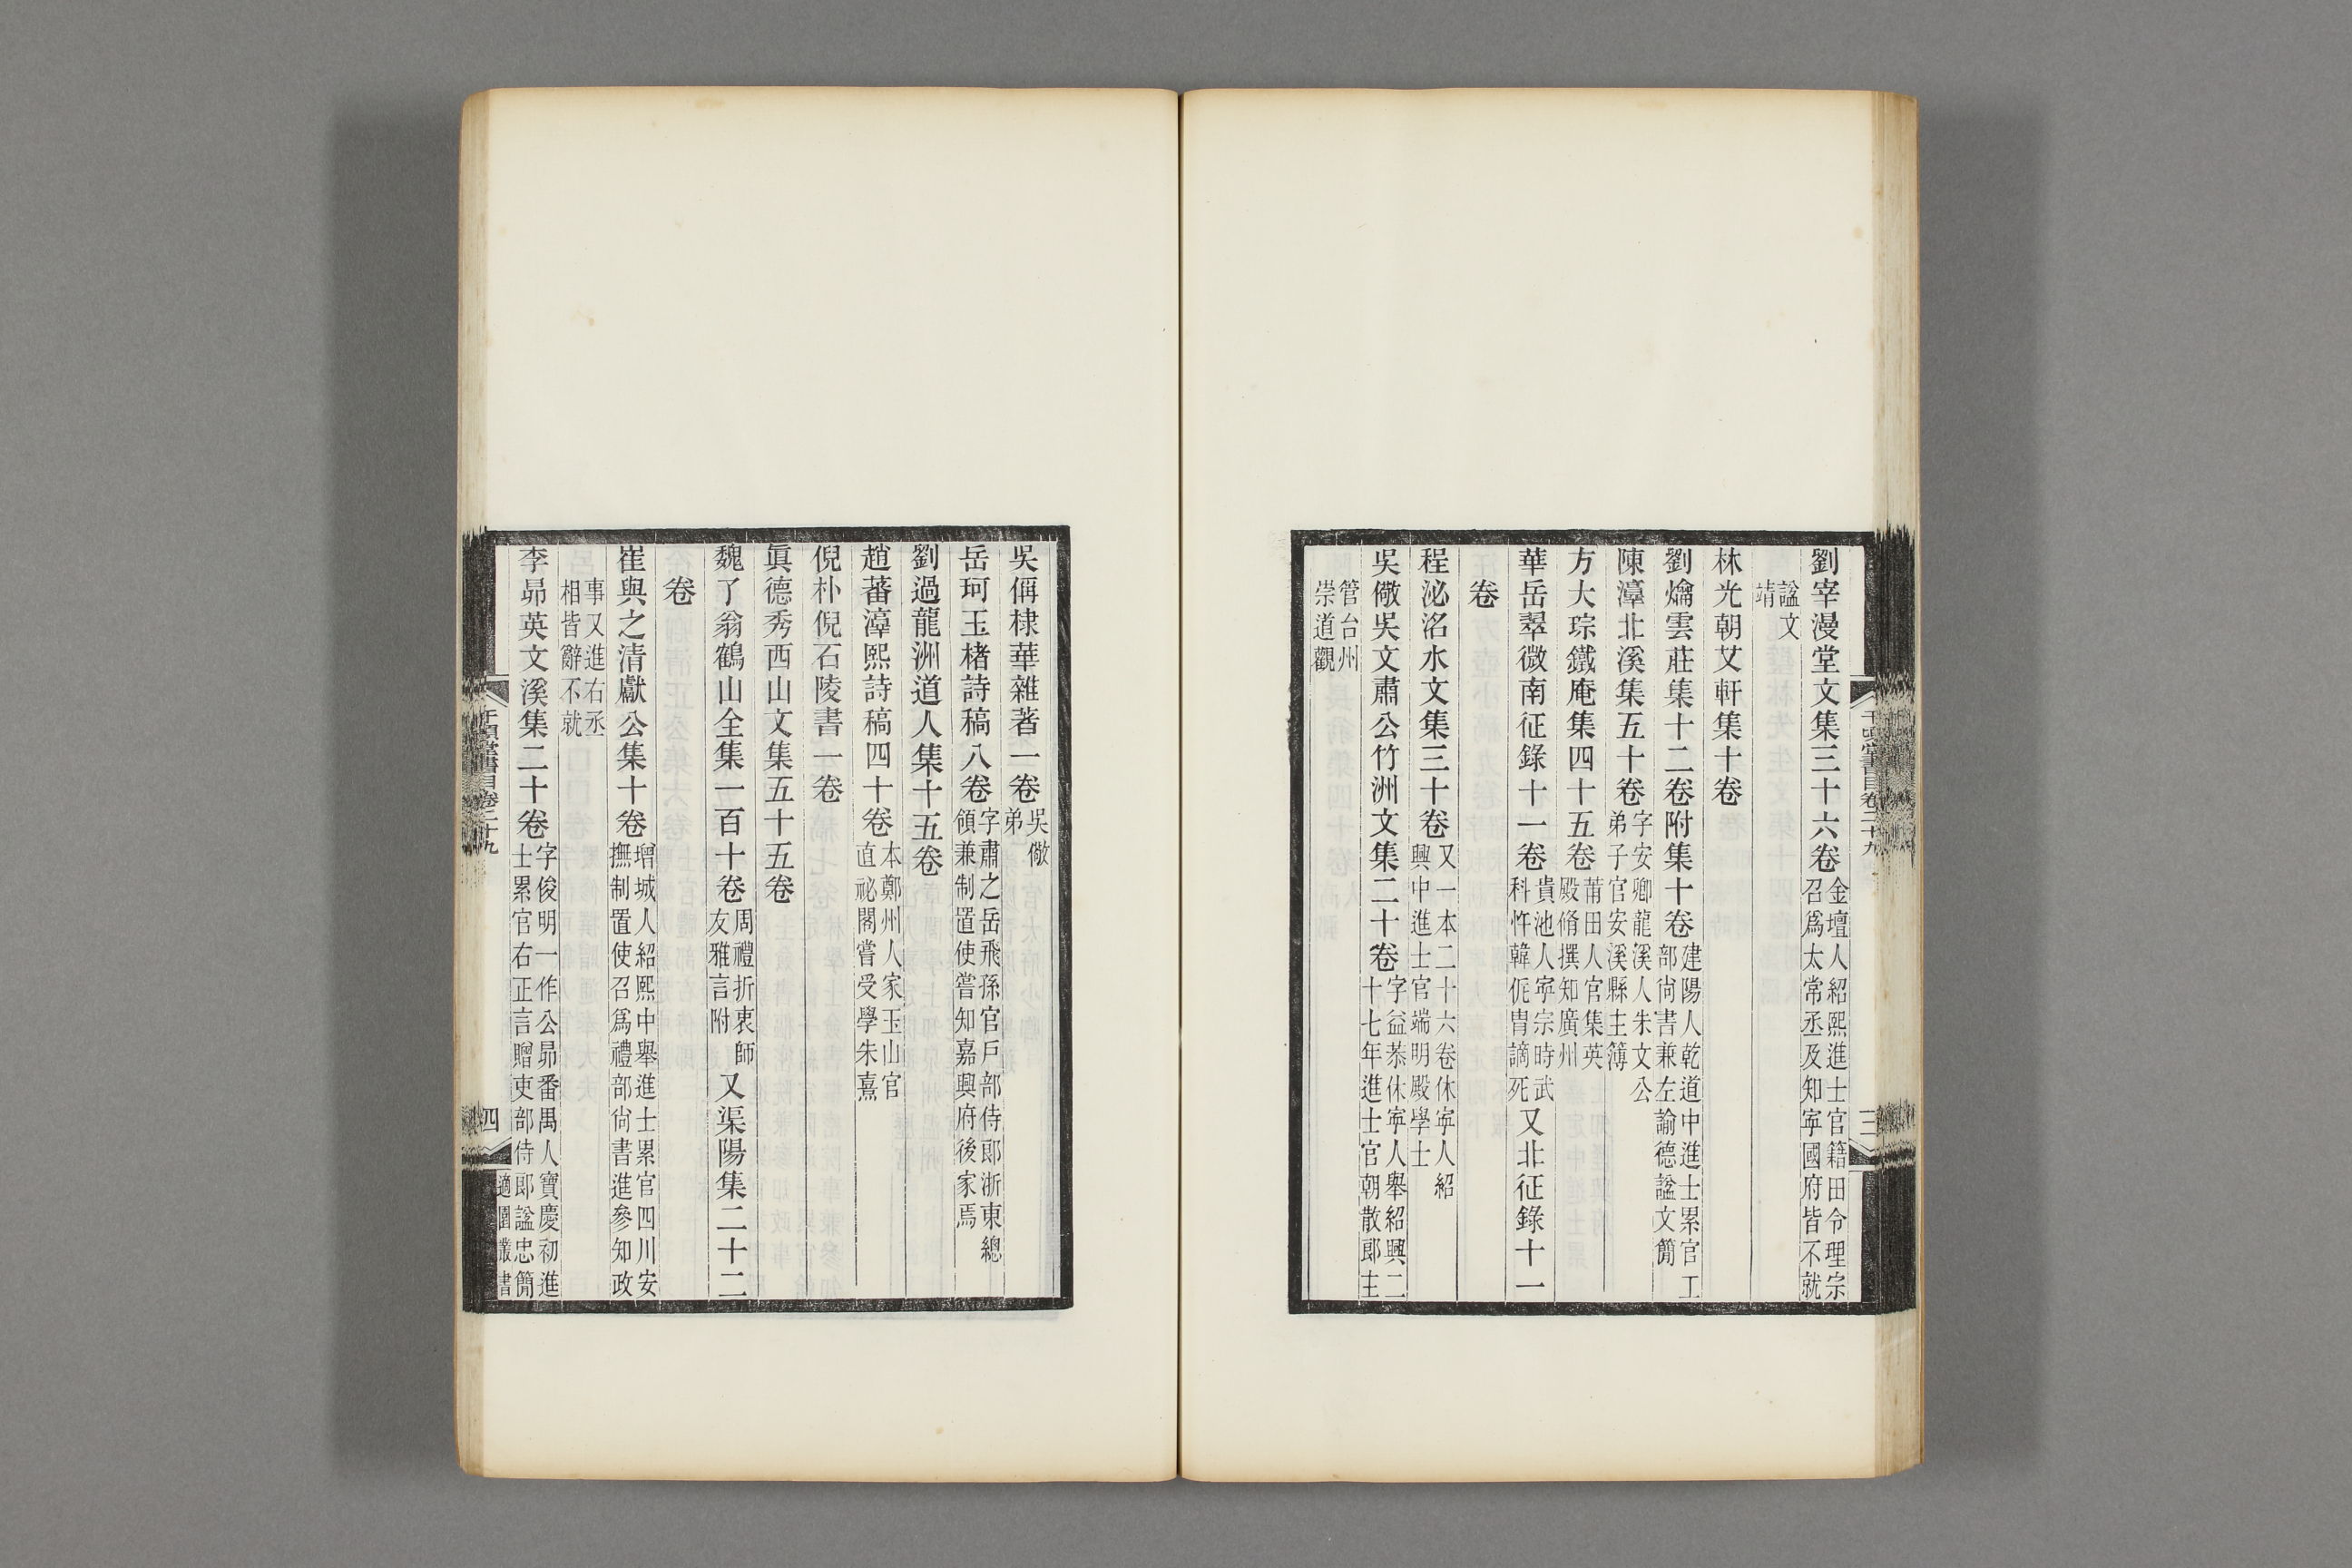 劉宰漫堂文集三十六卷金壇人紹熙進士官籍田令理宗召爲太常丞及知寧國府皆不就
諡文靖
林光朝艾軒集十卷
劉爚雲莊集十二卷附集十卷建陽人乾道中進士累官工部尙書兼左諭德諡文簡
陳漳北溪集五十卷字安卿龍溪人朱文公弟子官安溪縣主簿
方大琮鐵庵集四十五卷莆田人官集英殿脩撰知廣州
華岳翠微南征錄十一卷貴池人寧宗時武科忤韓侂胄謫死又北征錄十一
卷
程泌洺水文集三十卷又一本二十六卷休寧人紹興中進士官端明殿學士
吳儆吳文肅公竹洲文集二十卷字益恭休寧人舉紹興二十七年進士官朝散郎主
管台州崇道觀
千頃堂書目卷二十九
三
吳偁棣華雜著一卷吳儆弟
岳珂玉楮詩稿八卷字肅之岳飛孫官戶部侍郎浙東總領兼制置使嘗知嘉興府後家焉
劉過龍洲道人集十五卷
趙蕃漳熙詩稿四十卷本鄭州人家玉山官直祕閣嘗受學朱熹
倪朴倪石陵書一卷
眞德秀西山文集五十五卷
魏了翁鶴山全集一百十卷周禮折衷師友雅言附又渠陽集二十二
卷
崔與之清獻公集十卷增城人紹熙中舉進士累官四川安撫制置使召爲禮部尙書進參知政
事又進右丞相皆辭不就
李昴英文溪集二十卷字俊明一作公昴番禺人寶慶初進士累官右正言贈吏部侍郎諡忠簡
千頃堂書目卷二十九
四
適園叢書